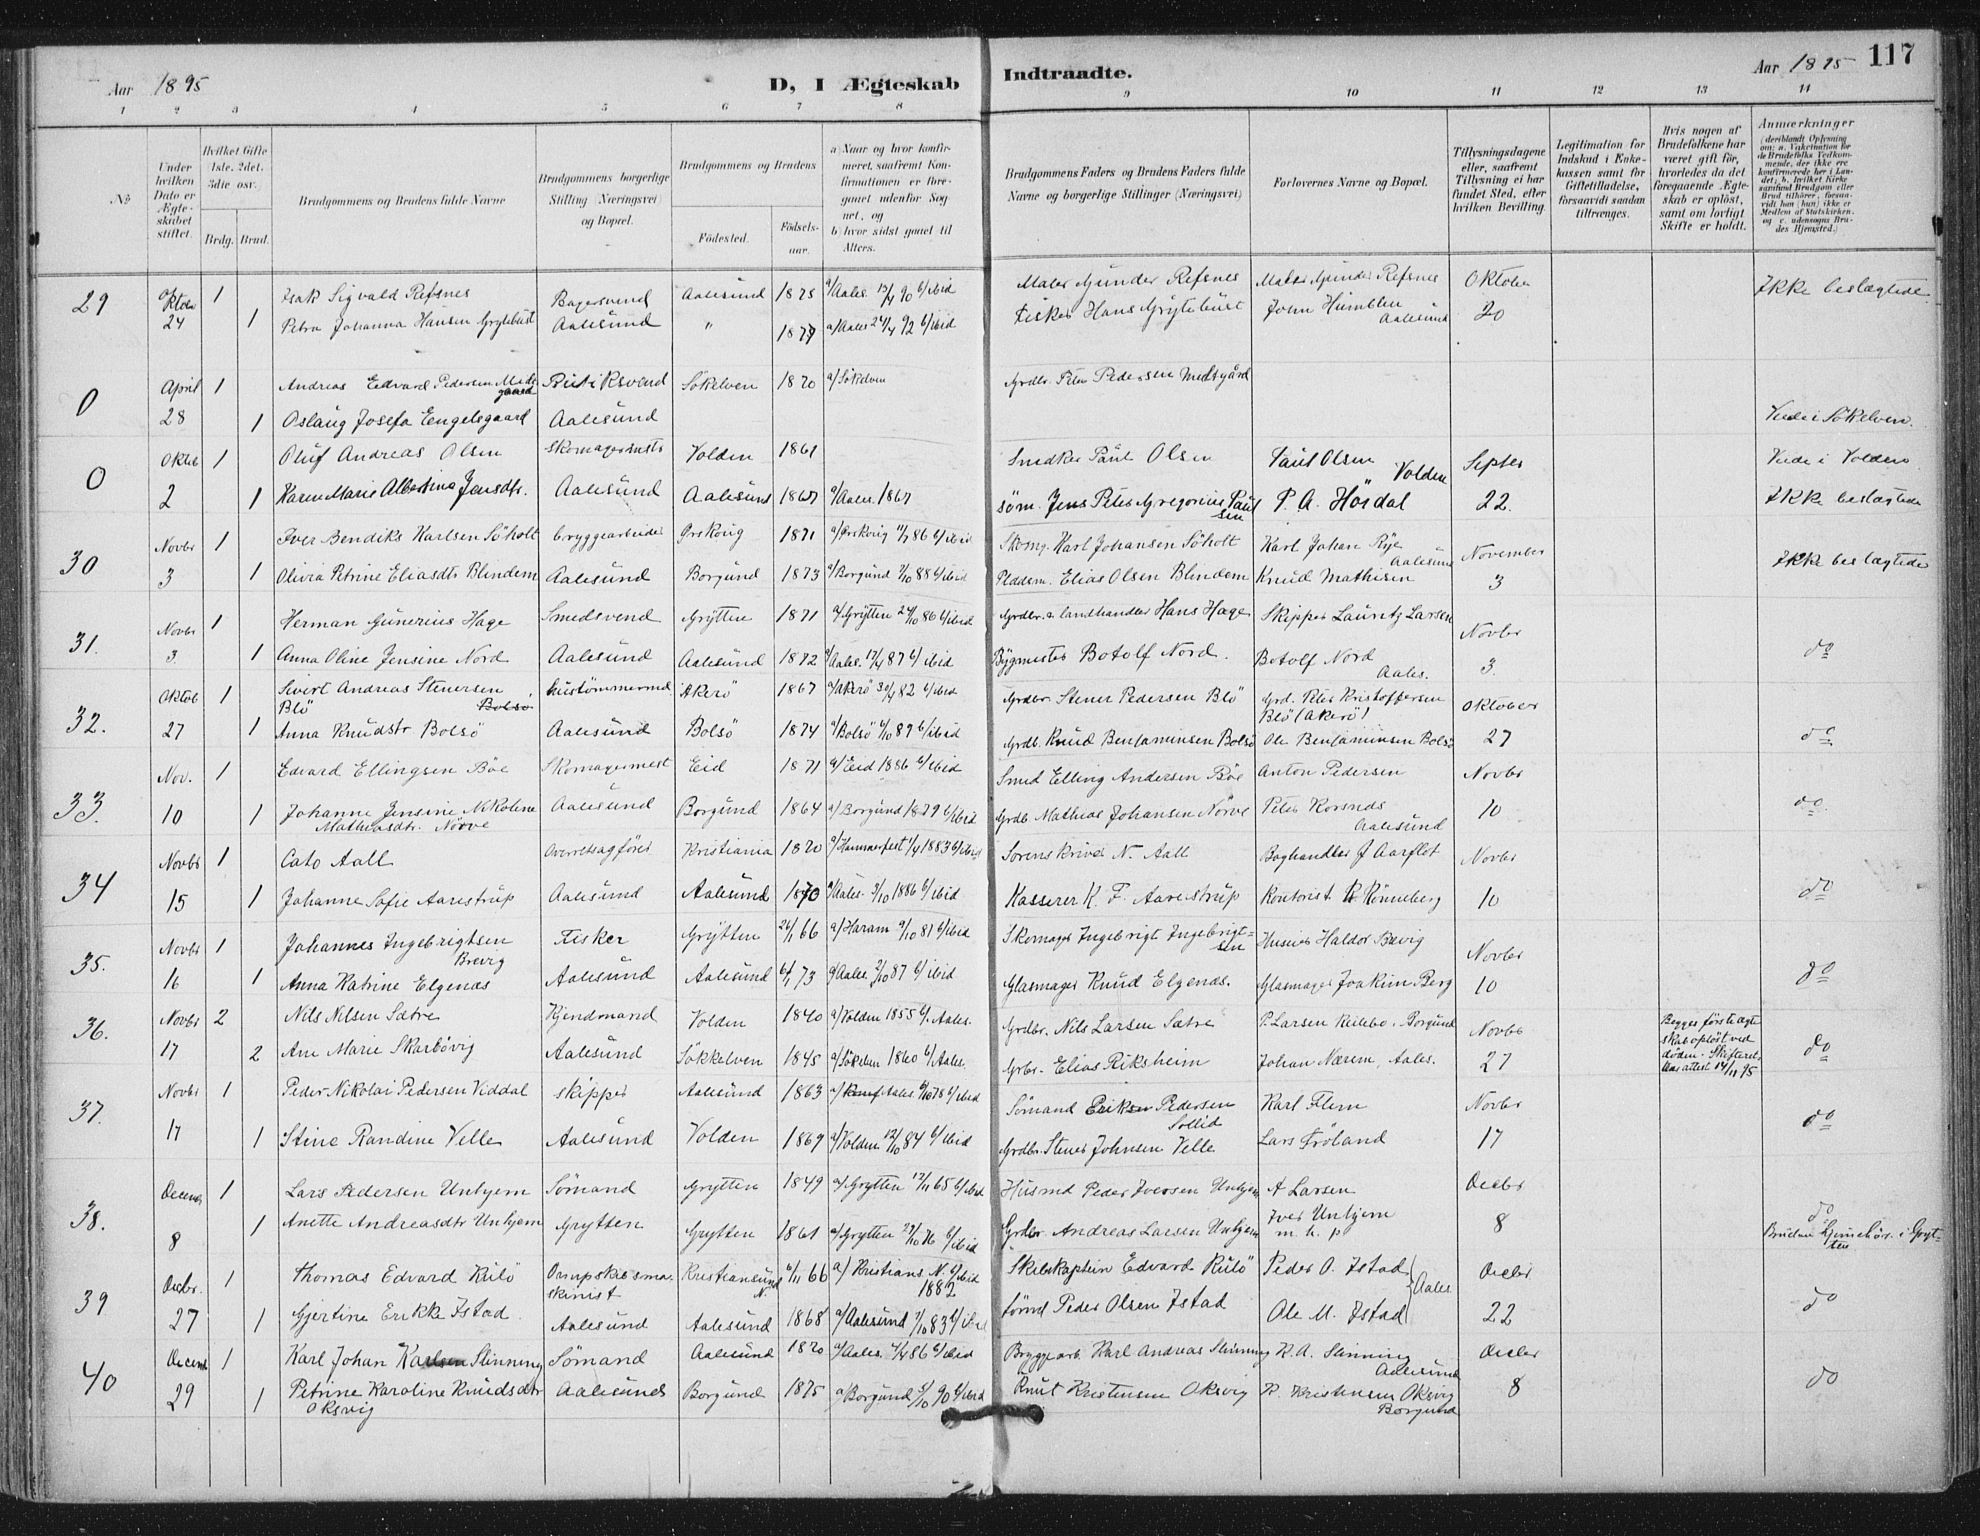 Aar 1895
D, I Ægteskab
Indtraadte.
Aar 1895
117
1 2 3 4 5 6 7 8 9 10 11 12 13 14
No
Under hvilken Dato er Ægteskabet stiftet.
Hvilket Gifte 1ste. 2det. 3die osv.
Brdg. Brud.
Brudgommens og Brudens fulde Navne
Brudgommens borgerlige Stilling (Næringsvei) og Bopæl.
Brudgommens og Brudens
Fødested.
Fødselsaar.
a) Naar og hvor konfirmeret, saafremt Konfirmationen er foregaaet udenfor Sognet, og
b) hvor sidst gaaet til Alters.
Brudgommens Faders og Brudens Faders fulde Navne og borgerlige Stillinger (Næringsvei)
Forlovernes Navne og Bopæl.
Tillysningsdagene eller, saafremt Tillysning ei har fundet Sted, efter hvilken Bevilling.
Legitimation for Indskud i Enkekassen samt for Giftetilladelse, forsaavidt saadan tiltrænges.
Hvis nogen af Brudefolkene har været gift før, hvorledes da det foregaaende Ægteskab er opløst, samt om lovligt Skifte er holdt.
Anmærkninger
29 Oktober 1 Isak Sigvald Refsnes Bagersvend Aalesund 1875 a/Aales. 13/4 90 b/ibid Maler Gunder Refsnes Maler Gunder Refsnes Oktober Ikke beslægtede
24 1 Petra Johanna Hansen Grytebust Aalesund " 1877 a/Aales 24/4 92 b/ibid Fisker Hans Grytebust John Humblen Aalesund 20
0 April 1 Andreas Edvard Pedersen Midtgaard Butiksvend Søkelven 1870 a/Søkelven Grdbr. Peter Pedersen Midtgård
28 1 Oslaug Josefa Engelsgaard Aalesund Viede i Søkelven.
0 Oktob 1 Oluf Andreas Olsen Skomagermester Volden 1861 Snedker Paul Olsen Paul Olsen Volden Septer Viede i Volden
2 1 Karen Marie Albertina Jensdtr. Aalesund Aalesund 1867 a/Aales. 1867 søm. Jens Peter Gregorius Paulsen P. A. Hørdal 22. Ikke beslægtede
30 Novbr 1 Iver Bendiks Karlsen Søholt bryggearbeider Ørskoug 1871 a/Ørskoug 86 b/ibid Skomg. Karl Johansen Søholt Karl Johan Rye Aalesund November Ikke beslægtede
3 1 Olivia Petrine Eliasdtr Blindem Aalesund Borgund 1873 a/Borgund 7/10 88 b/ibid Pladsm. Elias Olsen Blindem Knud Mathisen 3
31. Novbr 1 Herman Gunerius Hage Smedsvend Grytten 1871 a/Grytten 24/10 86 b/ibid Grdbr. & landhandler Hans Hage Skipper Lauritz Larsen Novbr do
3 1 Anna Oline Jensine Nord Aalesund Aalesund 1872 a/Aales. 17/4 87 b/ibid Bygmester Botolf Nord. Botolf Nord Aales. 3.
32. Oktob 1 Sivert Andreas Stenersen Blø hustømmermd Akerø 1867 a/Akerø 30/4 82 b/ibid Grdbr. Stener Pedersen Blø Grd. Peter Kristoffersen Blø (Akerø) Oktober do
27 1 Anna Knudsdtr Bolsø Aalesund Bolsø 1874 a/Bolsø 6/10 89 b/ibid Grdb. Knud Benjaminsen Bolsø Ole Benjaminsen Bolsø 27
33. Nov. 1 Edvard Ellingsen Bøe Skomagermest Eid 1871 a/Eid 1886 b/ibid Smed Elling Andersen Bøe Anton Pedersen Novbr do
10 1 Johanne Jensine Nikoline Mathiasdtr. Nørve Aalesund Borgund 1864 a/Borgund 1879 b/ibid Grdb Mathias Johansen Nørve Peter Korsnes Aalesund 10
34 Novbr 1 Cato Aall Overretsagfører Kristiania 1870 a/Hammerfest 1/4 1883 b/ibid Sorenskriver N. Aall Boghandler J Aarflot Novbr do
15 1 Johanne Sofie Aarestrup Aalesund Aalesund 1870 a/Aales. 3/10 1886 b/ibid Kasserer K. F. Aarestrup Kontorist R Rønneberg 10
35. Novbr 1 Johannes Ingebrigtsen Brevig Fisker Grytten 26/1 66 a/Haram 9/10 81 b/ibid Skomager Ingebrigt Ingebrigtsen Husmd Haldor Brevig Novbr do
16 1 Anna Katrine Elgenæs Aalesund Aalesund 6/1 73 a/Aales. 2/10 87 b/ibid Glasmager Knud Elgenæs. Glasmager Joakim Berg 10
36. Novbr 2 Nils Nilsen Sætre Kjendmand Volden 1840 a/Volden 1855 b/Aales. Grdbr. Nils Larsen Sætre P. Larsen Borgund Novbr Begges første ægteskab opløst ved døden. Skifteret. attest 14/11 95 do
17 2 Ane Marie Skarbøvig Aalesund Søkkelven 1845 a/Søkelven 1860 b/Aales. Grbr. Elias Riksheim Johan Nærem, Aales. 27
37. Novbr 1 Peder Nikolai Pedersen Viddal skipper Aalesund 1863 a/ Aales 6/10 78 b/ibid Sømand Pedersen Sollid Karl Flem Novbr do
17 1 Stine Randine Velle Aalesund Volden 1869 a/Volden 12/10 84 b/ibid Grdbr. Stener Johnsen Velle Lars Frøland 17
38. Decemb. 1 Lars Pedersen Unhjem Sømand Grytten 1849 a/Grytten 12/11 65 b/ibid Husmd Peder Iversen Unhjem A Larsen Decbr do
8 1 Anette Andreasdtr Unhjem Grytten Grytten 1861 a/Grytten 29/10 76 b/ibid Grdbr Andreas Larsen Unhjem Iver Unhjem m. h. p 8 Bruden hjemehør. i Grytten
39 Decbr. 1 Thomas Edvard Rulø Dampskibsmaskinist Kristiansund N. 6/11 66 a/ Kristians. N. b/ibid 1882 Skibskaptein Edvard Rulø Peder O. Istad Aales. Decbr do
27 1 Gjertine Erikke Istad Aalesund Aalesund 1868 a/Aalesund 7/10 83 b/ibid sømd Peder Olsen Istad Ole M. Istad 22
40 Decemb 1 Karl Johan Karlsen Slinning Sømand Aalesund 1870 a/Aales. 4/4 86 b/ibid Bryggearb. Karl Andreas Slinning K. A. Slinning Aalesund Decbr do
29 1 Petrine Karoline Knudsdtr Oksvig Aalesund Borgund 1875 a/Borgund 5/10 90 b/ibid Knut Kristensen Oksvig K. Kristensen Oksvig Borgund 8